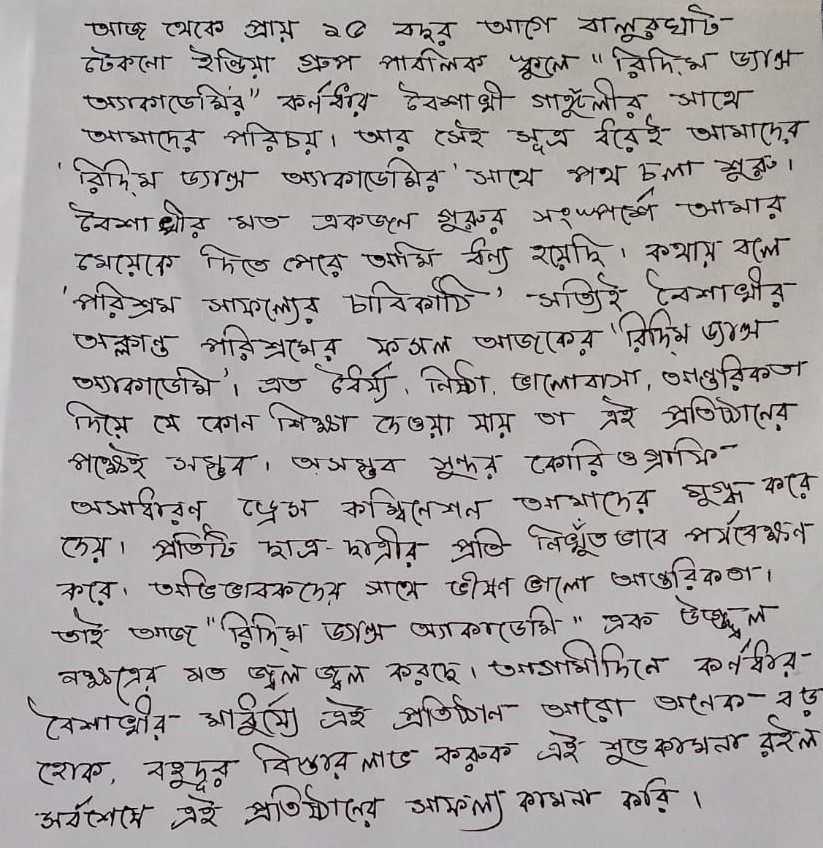 আজ থেকে প্রায় ১৫ বছর আগে বালুরঘাট
টেকনো ইন্ডিয়া গ্রুপ পাবলিক স্কুলে "রিদিম ড্যান্স
অ্যাকাডেমির" কর্নধার বৈশাখী গাঙ্গুঁলীর সাথে
আমাদের পরিচয়। আর সেই সূত্র ধরেই আমাদের
'রিদিম ড্যান্স অ্যাকাডেমির' সাথে পথ চলা শুরু।
বৈশাখীর মত একজন গুরুর সংস্পর্শে আমার
মেয়েকে দিতে পেরে আমি ধন্য হয়েছি। কথায় বলে
'পরিশ্রম সাফল্যের চাবিকাঠি' সত্যিই বৈশাখীর
অক্লান্ত পরিশ্রমের ফসল আজকের 'রিদিম ড্যান্স
অ্যাকাডেমি'। এত ধৈর্য্য, নিষ্ঠা, ভালোবাসা, আন্তরিকতা
দিয়ে যে কোন শিক্ষা দেওয়া যায় তা এই প্রতিষ্ঠানের
পক্ষেই সম্ভব। অসম্ভব সুন্দর কোরিওগ্রাফি
অসাধারন ড্রেস কম্বিনেশন আমাদের মুগ্ধ করে
দেয়। প্রতিটি ছাত্র-ছাত্রীর প্রতি নিখুঁত ভাবে পর্যবেক্ষন
করে। অভিভাবকদের সাথে ভীষণ ভালো আন্তরিকতা।
তাই আজ "রিদিম ড্যান্স অ্যাকাডেমি" এক উজ্জ্বল
নক্ষত্রের মত জ্বল জ্বল করছে। আগামীদিনে কর্নধার
বৈশাখীর মাধুর্য্যে এই প্রতিষ্ঠান আরো অনেক বড়
হোক, বহুদূর বিস্তার লাভ করুক এই শুভকামনা রইল
সর্বশেষে এই প্রতিষ্ঠানের সাফল্য কামনা করি।